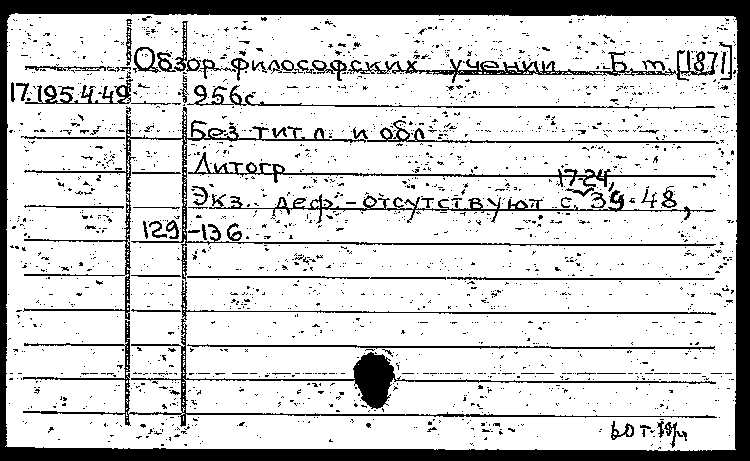 Обзор философских учений. Б. т. [1871]
17.195.4.49 956с.
Без тит. л. и обл.
Литогр
17-24,
Экз. деф. - отсутствуют с. 39-48,
129-136.